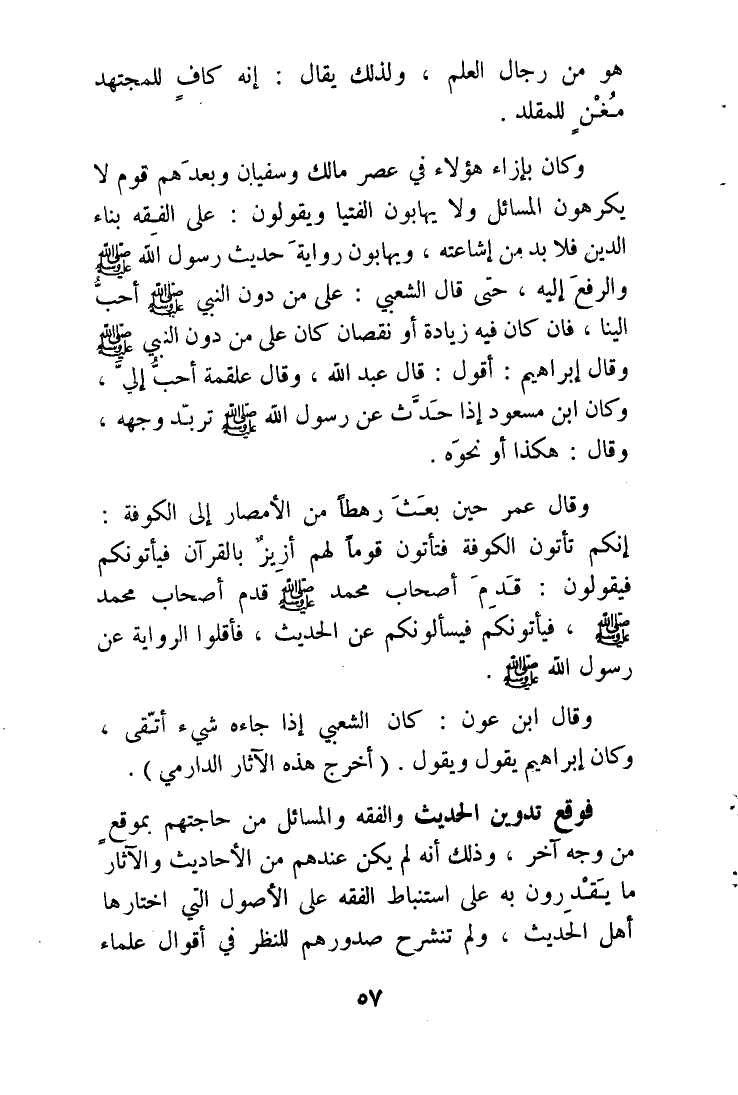 هو من رجال العلم ، ولذلك يقال : إنه كافٍ للمجتهد
مُغْنٍ للمقلد .
وكان بإزاء هؤلاء في عصر مالك وسفيان وبعدَهم قوم لا
يكرهون المسائل ولا يهابون الفتيا ويقولون : على الفقه بناء
الدين فلا بد من إشاعته ، ويهابون روايةَ حديث رسول الله ﷺ
والرفعَ إليه ، حتى قال الشعبي : على من دون النبي ﷺ أحبُّ
الينا ، فان كان فيه زيادة أو نقصان كان على من دون النبي ﷺ
وقال إبراهيم : أقول : قال عبد الله ، وقال علقمة أحبُّ إليَّ ،
وكان ابن مسعود إذا حَدَّث عن رسول الله ﷺ تربّد وجهه ،
وقال : هكذا أو نحوَه .
وقال عمر حين بعَثَ رهطاً من الأمصار إلى الكوفة :
إنكم تأتون الكوفة فتأتون قوماً لهم أزِيزٌ بالقرآن فيأتونكم
فيقولون : قَدِمَ أصحاب محمد ﷺ قدم أصحاب محمد
ﷺ ، فيأتونكم فيسألونكم عن الحديث ، فأقلوا الرواية عن
رسول الله ﷺ .
وقال ابن عون : كان الشعبي إذا جاءه شيء أتّقى ،
وكان إبراهيم يقول ويقول . ( أخرج هذه الآثار الدارمي ) .
فوقع تدوين الحديث والفقه والمسائل من حاجتهم بموقعٍ
من وجه آخر ، وذلك أنه لم يكن عندهم من الأحاديث والآثار
ما يَقْدِرون به على استنباط الفقه على الأصول التي اختارها
أهل الحديث ، ولم تنشرح صدورهم للنظر في أقوال علماء
٥٧